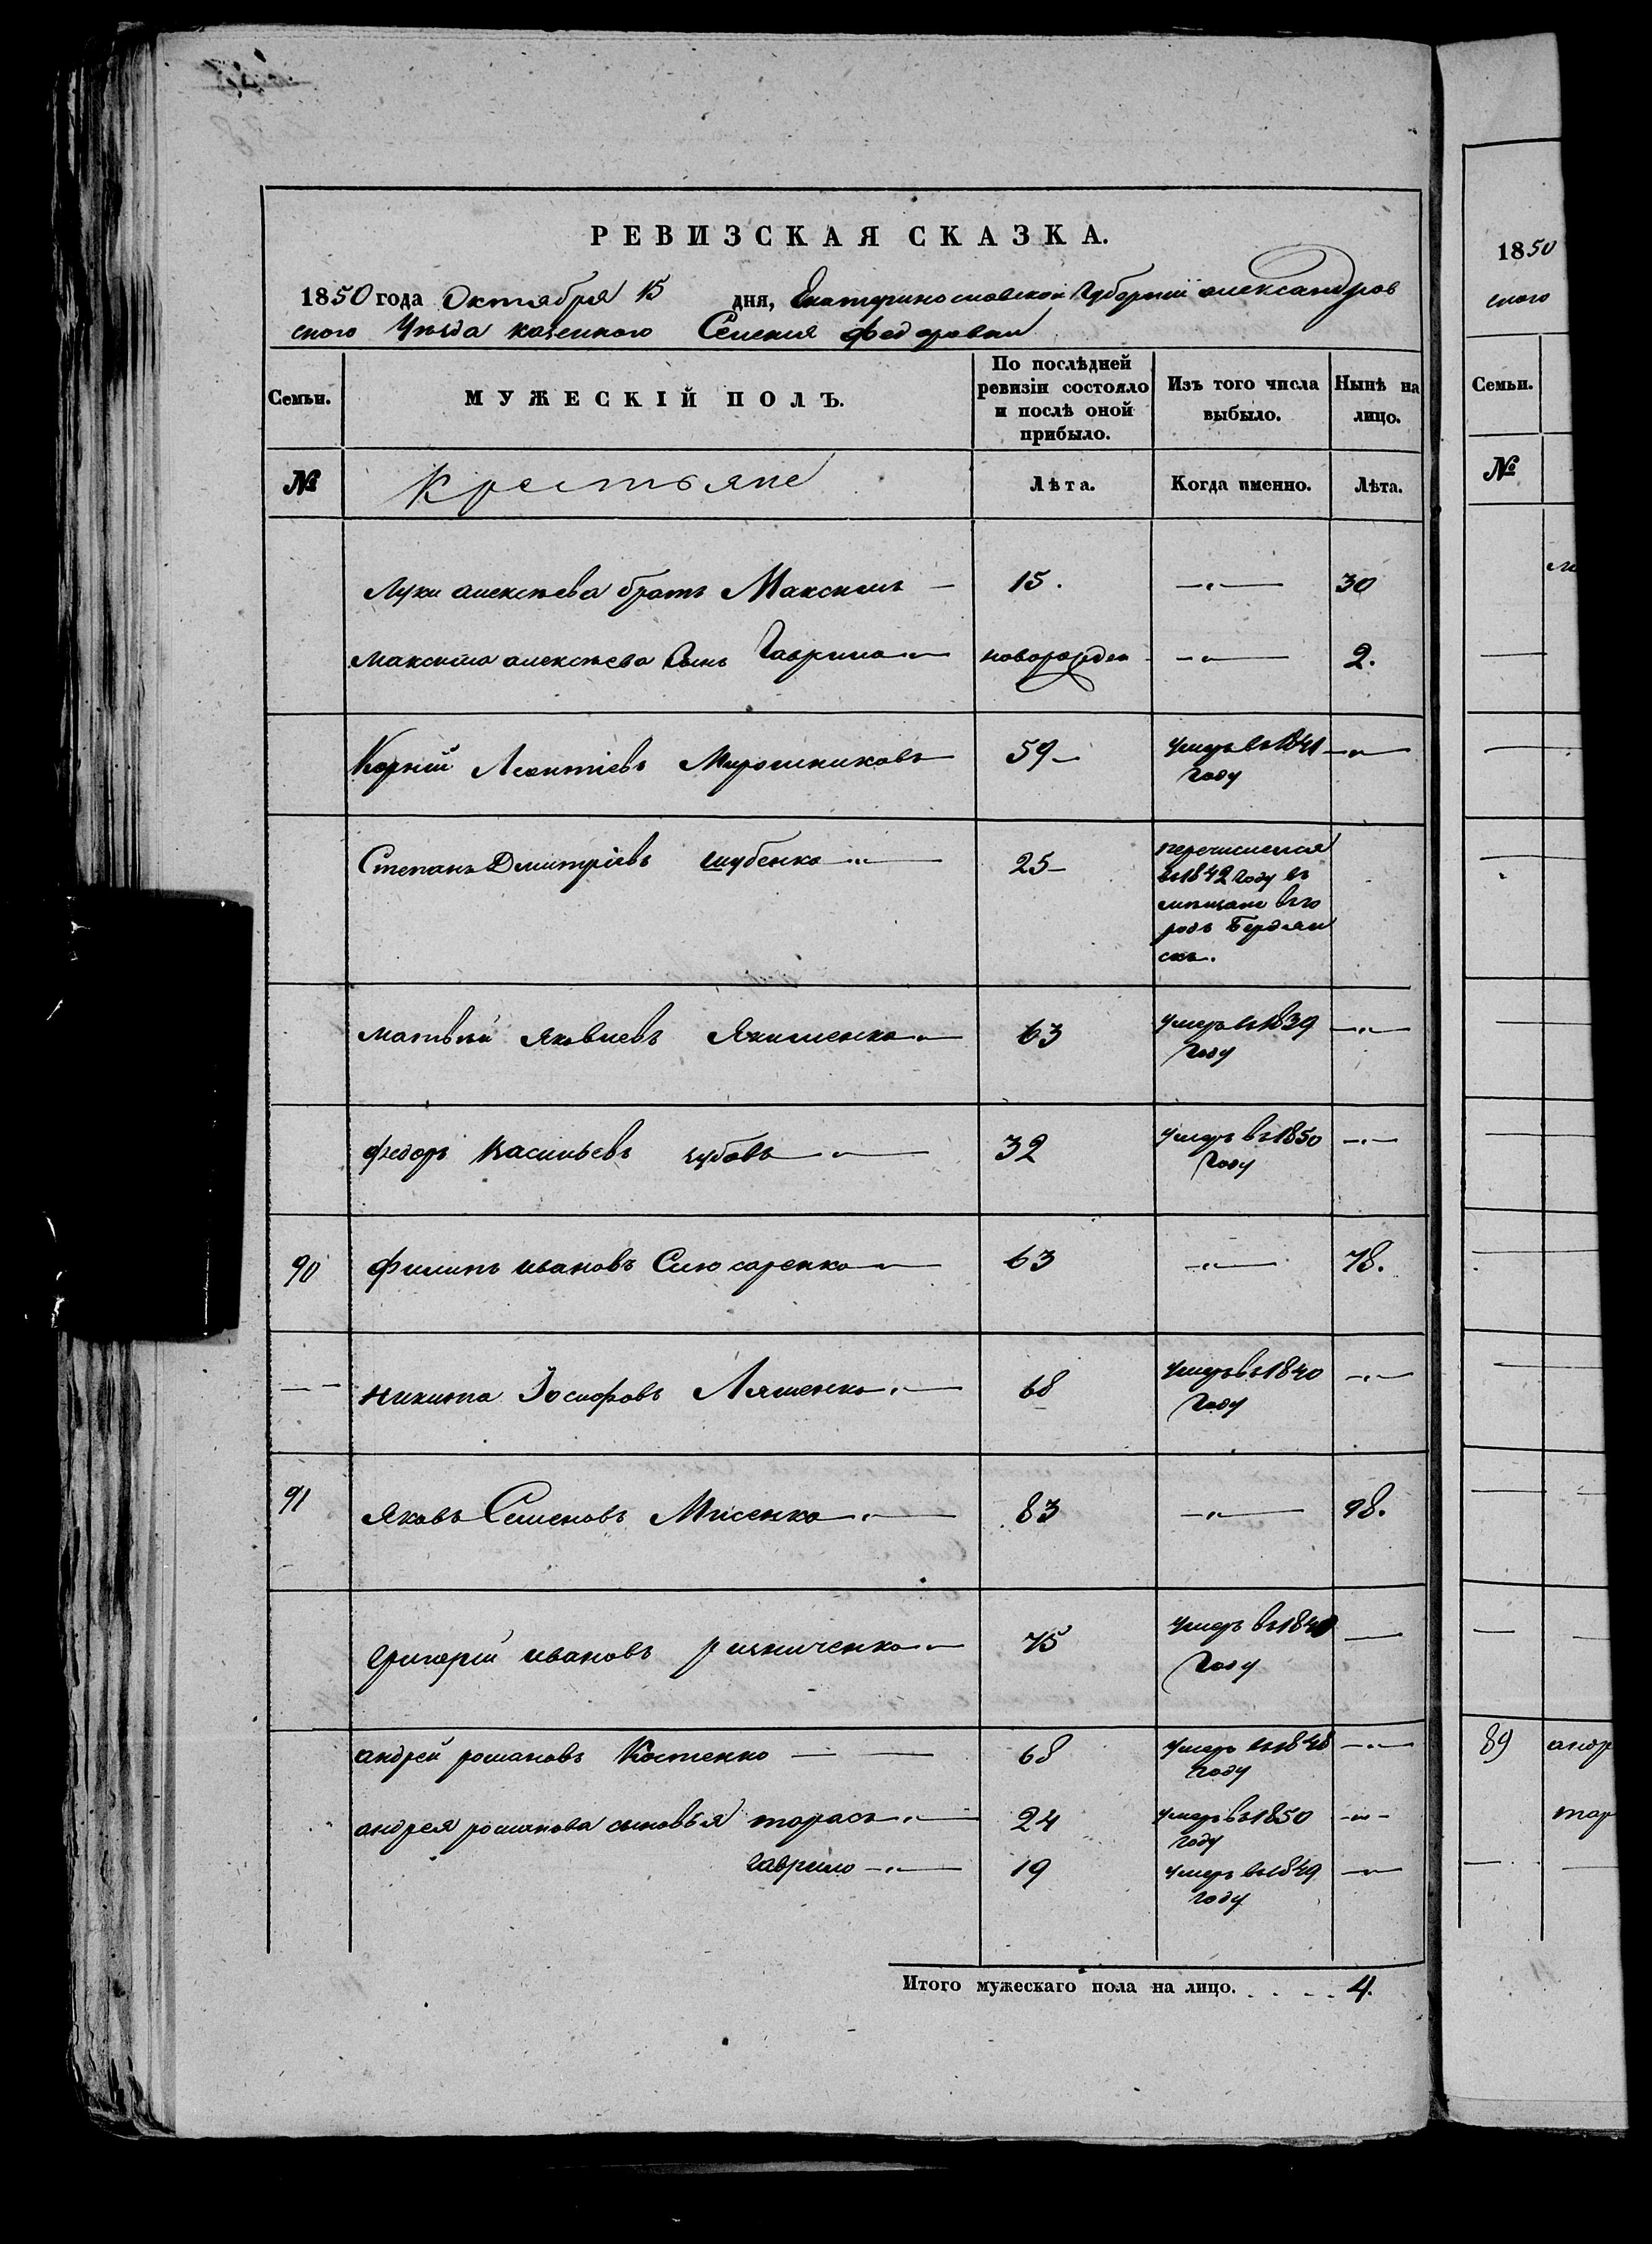 РЕВИЗСКАЯ СКАЗКА.
1850 года Октября 15 дня, Екатеринославской Губернии александров
ского Уѣзда казенного Селения Федоровки
Семьи. МУЖЕСКІЙ ПОЛЪ. По послѣдней ревизіи состояло и послѣ оной прибыло. Изъ того числа выбыло. Нынѣ на лицо.
№ Крестьяне Лѣта. Когда именно. Лѣта.
Луки алексѣева братъ Максимъ — 15. —„— 30
Максима алексѣева Сынъ Гаврило —„— новорожден —„— 2.
Корній Леонтіевъ Мирошниковъ — 59 — умеръ въ 1841 —„—
году
Степанъ Дмитріевъ шубенко —„— 25 — перечислился
въ 1842 году въ
мѣщане въ го
родъ Бердян
скъ.
матвѣй яковлевъ Якименко —„— 63 умеръ въ 1839 —„—
году
федоръ Васильевъ зубовъ —„— 32 умеръ въ 1850 —„—
году
90 филипъ ивановъ Слюсаренко —„— 63 —„— 78.
—— никита Іосифовъ Ляшенко —„— 68 умеръ въ 1840 —„—
году
91 яковъ Семеновъ Мисенко —„— 83 —„— 98.
григорій ивановъ резниченко —„— 75 умеръ въ 1840 —
году
андрей романовъ Костенко — — 68 умеръ въ 1848 —„—
году
андрея романова сыновья тарасъ —„— 24 умеръ въ 1850 —„—
году
гаврило —„— 19 умеръ въ 1849 —„—
году
Итого мужескаго пола на лицо. . . . . 4.
1850
ского
Семьи.
№
89 андр
тар